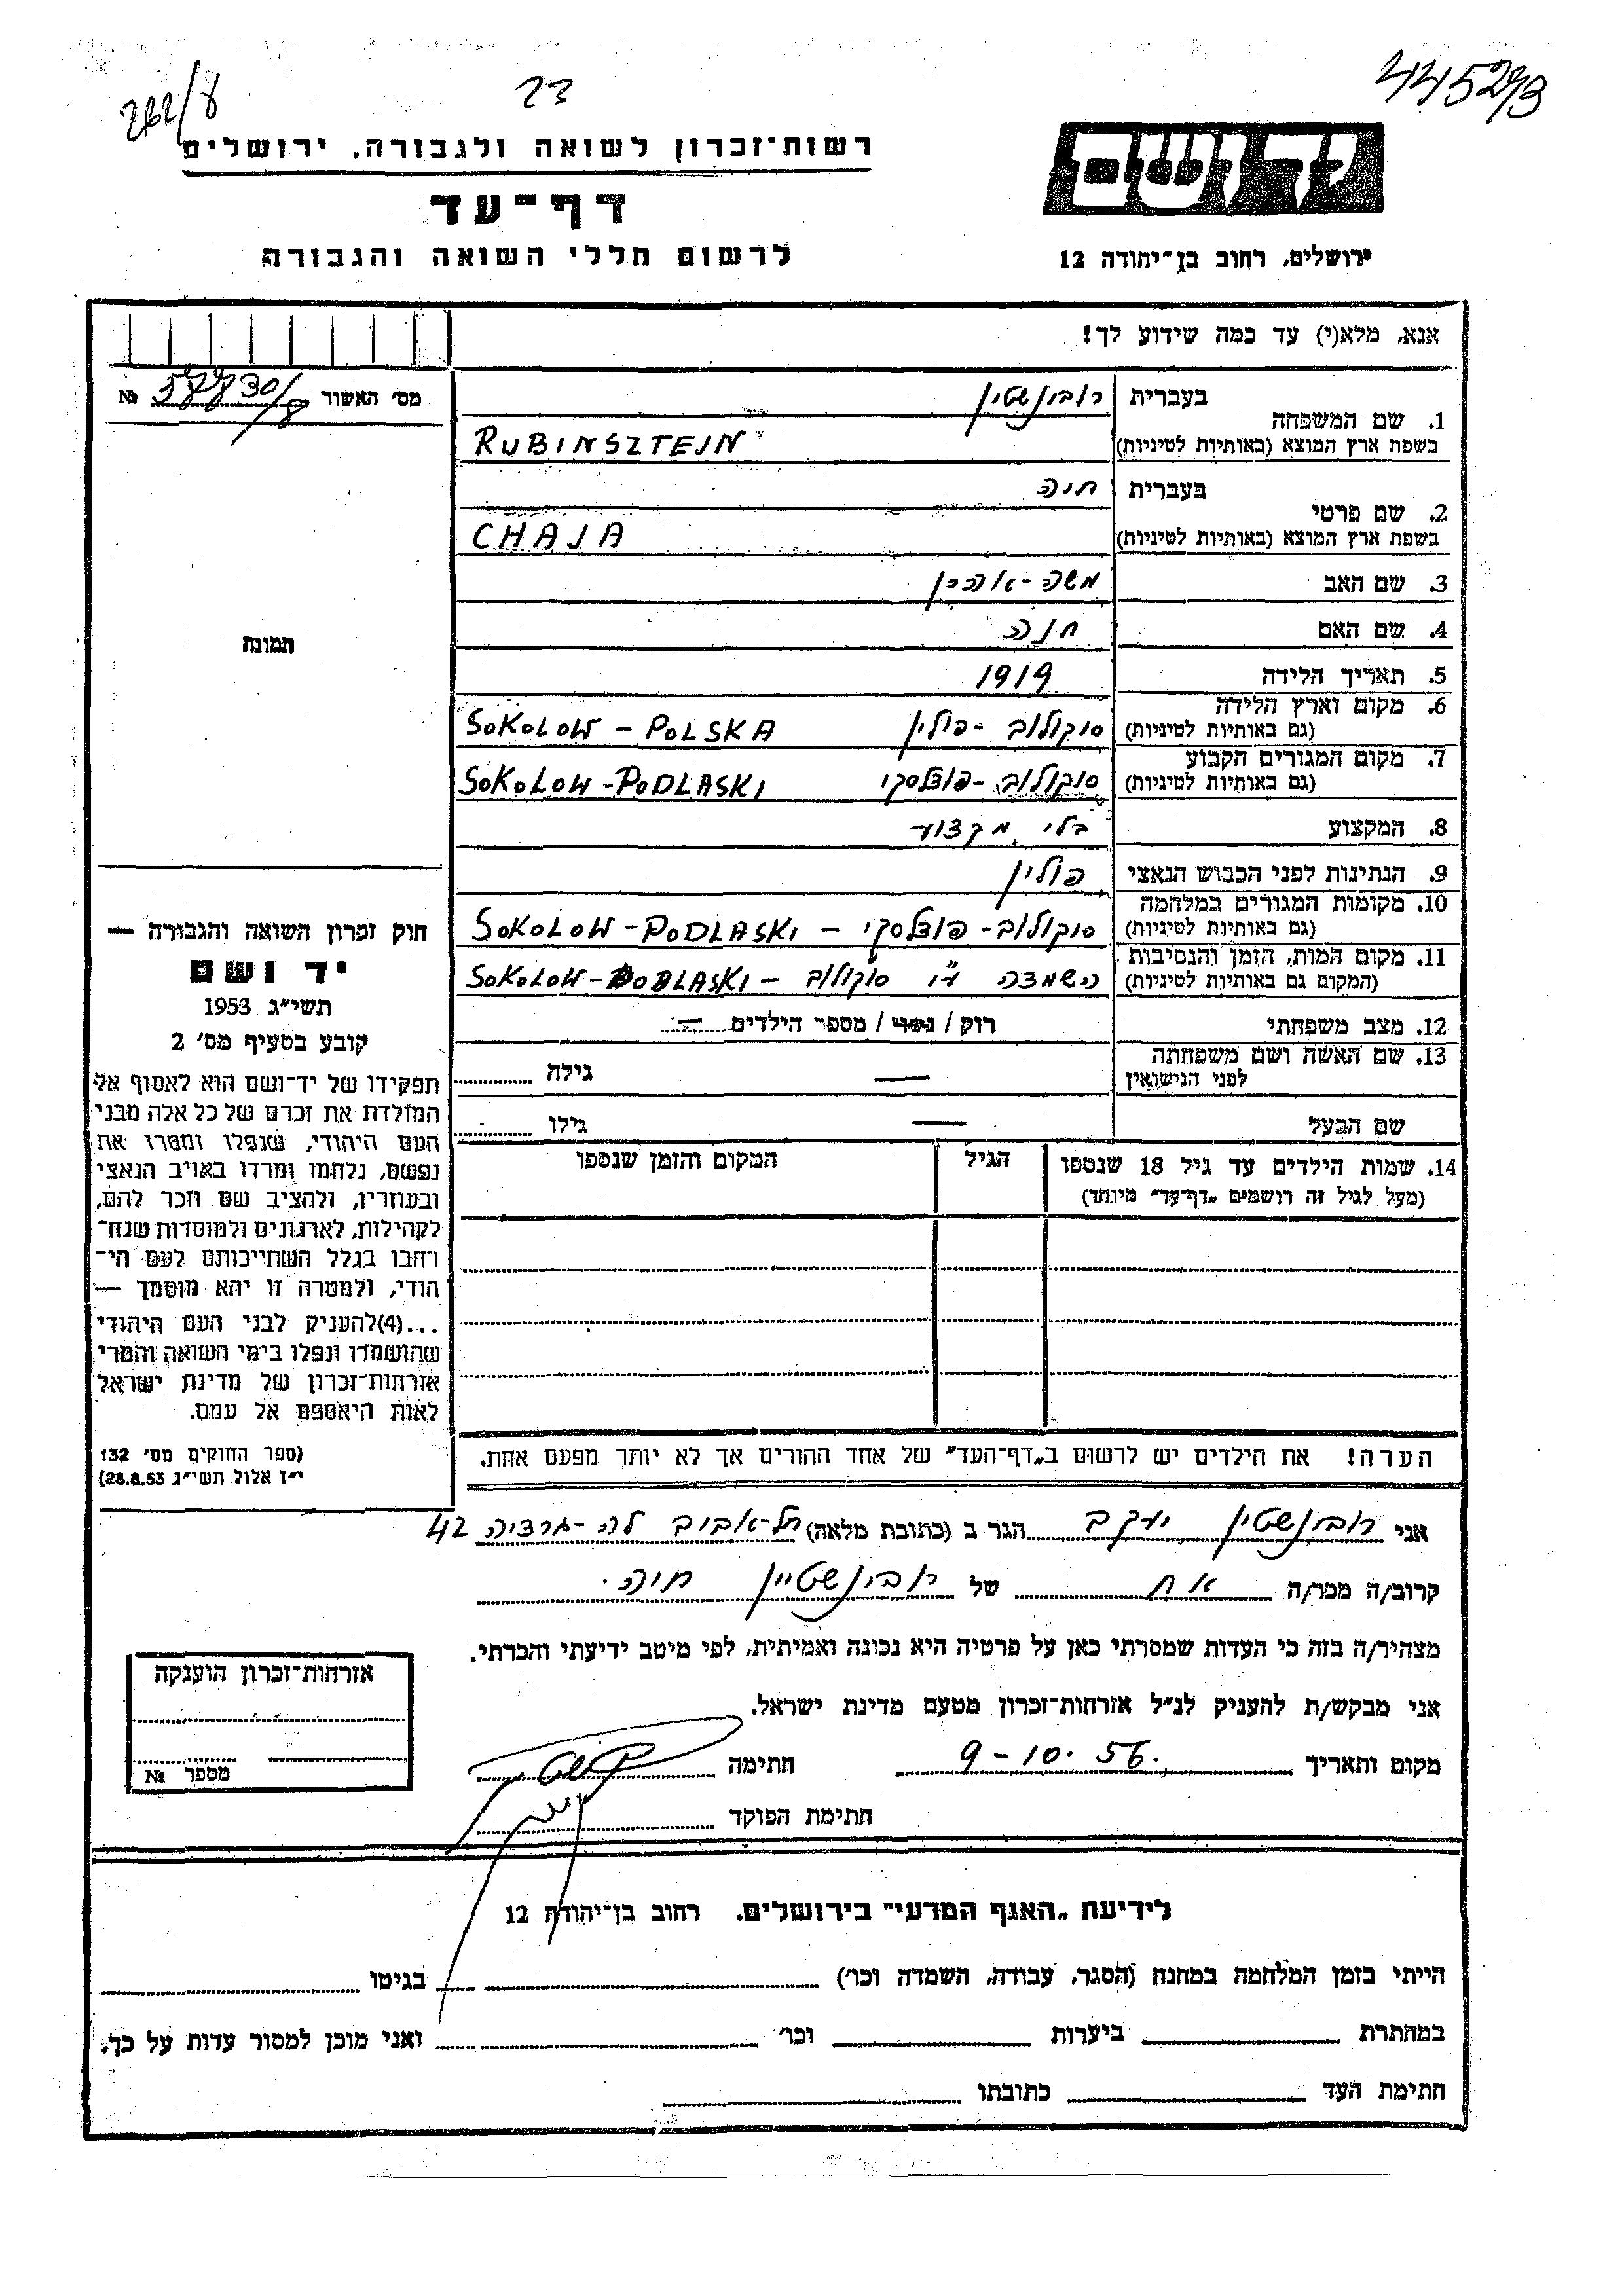 262/8
23
44528/3
רשות־זכרון לשואה ולגבורה, ירושלים
דף־עד
לרשום חללי השואה והגבורה
יד ושם
ירושלים, רחוב בן־יהודה 12
אנא, מלא(י) עד כמה שידוע לך!
מס׳ האשור № 57730/8
תמונה
1. שם המשפחה
בעברית רובינשטין
בשפת ארץ המוצא (באותיות לטיניות) RUBINSZTEJN
2. שם פרטי
בעברית חיה
בשפת ארץ המוצא (באותיות לטיניות) CHAJA
3. שם האב משה-אהרן
4. שם האם חנה
5. תאריך הלידה 1919
6. מקום וארץ הלידה
(גם באותיות לטיניות) סוקולוב-פולין SOKOLOW-POLSKA
7. מקום המגורים הקבוע
(גם באותיות לטיניות) סוקולוב-פודלסקי SOKOLOW-PODLASKI
8. המקצוע בלי מקצוע
9. הנתינות לפני הכבוש הנאצי פולין
10. מקומות המגורים במלחמה
(גם באותיות לטיניות) סוקולוב-פודלסקי - SOKOLOW-PODLASKI
11. מקום המות, הזמן והנסיבות
(המקום גם באותיות לטיניות) השמדה ע"י סוקולוב - SOKOLOW-PODLASKI
12. מצב משפחתי רוק / נשוי / מספר הילדים —
13. שם האשה ושם משפחתה
לפני הנישואין — גילה
שם הבעל — גילו
14. שמות הילדים עד גיל 18 שנספו
(מעל לגיל זה רושמים „דף־עד״ מיוחד)
הגיל
המקום והזמן שנספו
הערה! את הילדים יש לרשום ב„דף־העד״ של אחד ההורים אך לא יותר מפעם אחת.
חוק זכרון השואה והגבורה —
יד ושם
תשי״ג 1953
קובע בסעיף מס׳ 2
תפקידו של יד־ושם הוא לאסוף אל
המולדת את זכרם של כל אלה מבני
העם היהודי, שנפלו ומסרו את
נפשם, נלחמו ומרדו באויב הנאצי
ובעוזריו, ולהציב שם וזכר להם,
לקהילות, לארגונים ולמוסדות שנח־
רחבו בגלל השתייכותם לעם הי־
הודי, ולמטרה זו יהא מוסמך —
...(4)להעניק לבני העם היהודי
שהושמדו ונפלו בימי השואה והמרי
אזרחות־זכרון של מדינת ישראל
לאות היאספם אל עמם.
(ספר החוקים מס׳ 132
י״ז אלול תשי״ג 28.8.53)
אני רובינשטין יעקב הגר ב (כתובת מלאה) תל-אביב לה-גרציה 42
קרוב/ה מכר/ה אח של רובינשטיין חיה.
מצהיר/ה בזה כי העדות שמסרתי כאן על פרטיה היא נכונה ואמיתית, לפי מיטב ידיעתי והכרתי.
אני מבקש/ת להעניק לנ״ל אזרחות־זכרון מטעם מדינת ישראל.
מקום ותאריך 9-10.56. חתימה
חתימת הפוקד
אזרחות־זכרון הוענקה
מספר №
לידיעת „האגף המדעי״ בירושלים. רחוב בן־יהודה 12
הייתי בזמן המלחמה במחנה (הסגר, עבודה, השמדה וכו׳) בגיטו
במחתרת ביערות וכו׳ ואני מוכן למסור עדות על כך.
חתימת העד כתובתו